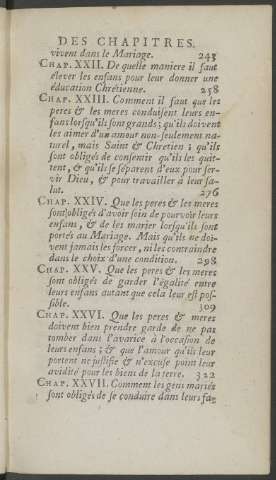 DES CHAPITRES.
vivent dans le Mariage. 243
CHAP. XXII. De quelle maniere il faut
élever les enfans pour leur donner une
éducation Chrétienne. 258
CHAP. XXIII. Comment il faut que les
peres & les meres conduisent leurs en-
fans lorsqu'ils sont grands; qu'ils doivent
les aimer d'un amour non-seulement na-
turel, mais Saint & Chretien; qu'ils
sont obligés de consentir qu'ils les quit-
tent, & qu'ils se séparent d'eux pour ser-
vir Dieu, & pour travailler à leur sa-
lut. 276
CHAP. XXIV. Que les peres & les meres
sont obligés d'avoir soin de pourvoir leurs
enfans, & de les marier lorsqu'ils sont
portés au Mariage. Mais qu'ils ne doi-
vent jamais les forcer, ni les contraindre
dans le choix d'une condition. 298
CHAP. XXV. Que les peres & les meres
sont obligés de garder l'égalité entre
leurs enfans autant que cela leur est pos-
sible. 309
CHAP. XXVI. Que les peres & meres
doivent bien prendre garde de ne pas
tomber dans l'avarice à l'occasion de
leurs enfans; & que l'amour qu'ils leur
portent ne justifie & n'excuse point leur
avidité pour les biens de la terre. 322
CHAP. XXVII. Comment les gens mariés
sont obligés de se conduire dans leurs fa-